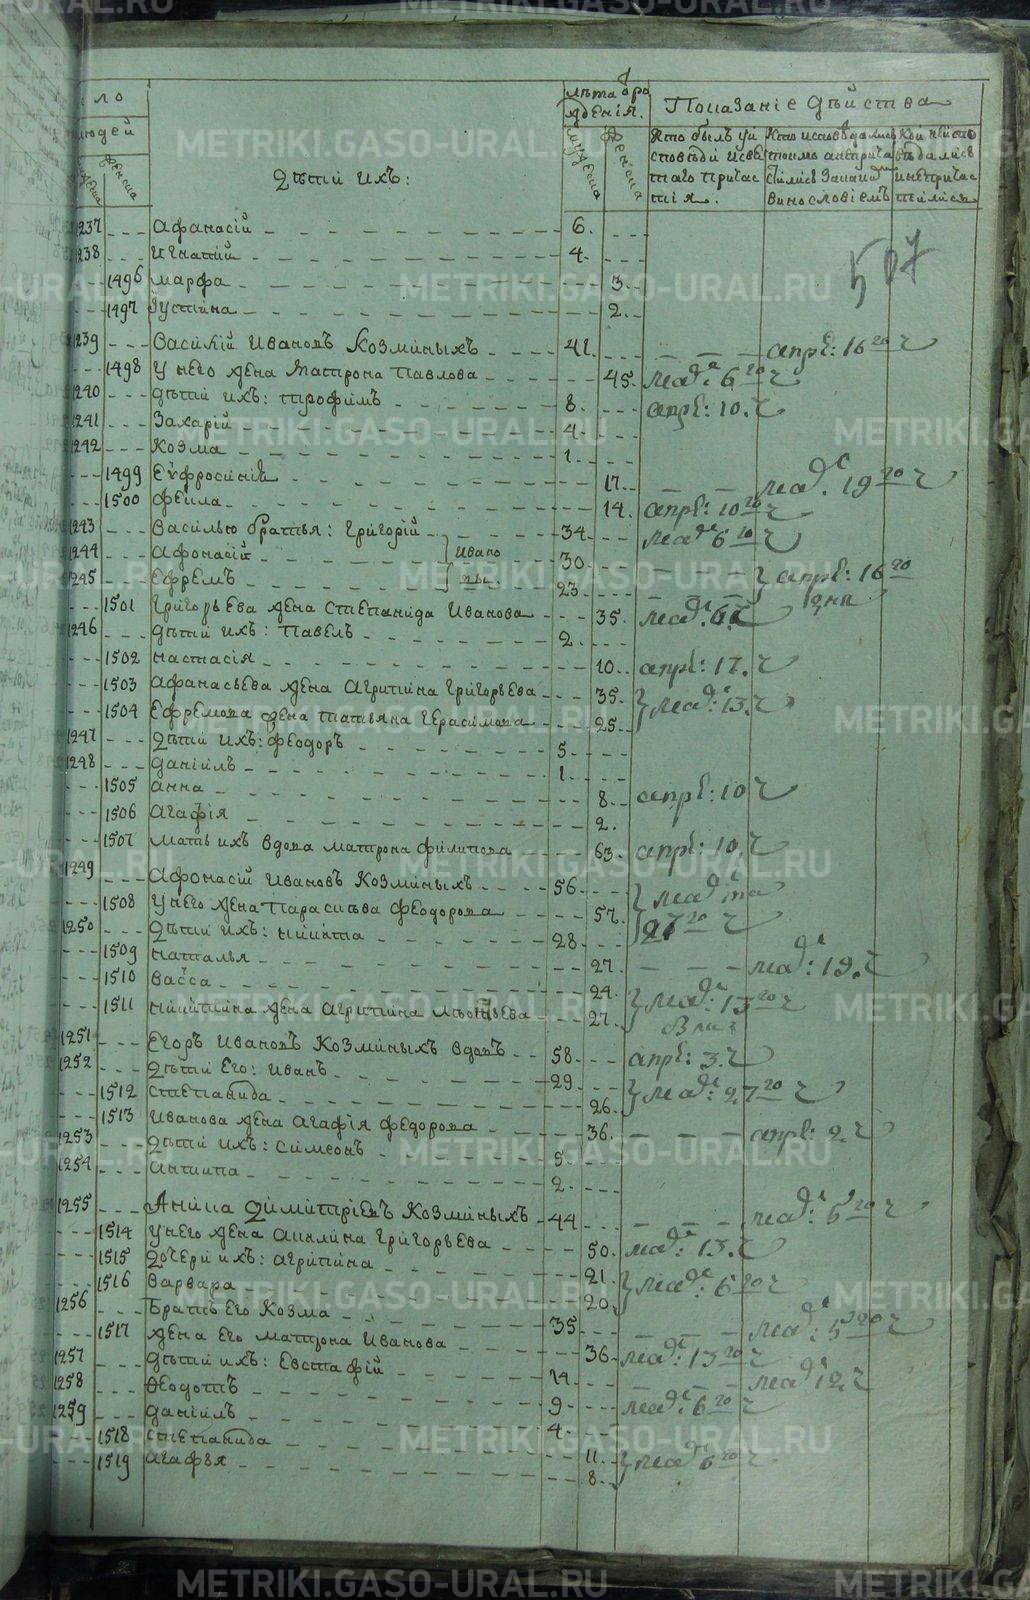 ло
людей
лѣта о рождения.
Показаніе дѣйства
Дѣти ихъ:
Кто былъ у исповѣди и святаго причастия.
Кто исповѣдались токмо а не причастились
винословіемъ
Кои не исповѣдались и не причастились
507
1237 Афанасій 6.
1238 Игнатій 4.
1496 Марфа 3.
1497 Іустина 2.
1239 Василій Ивановъ Козминыхъ 41. апрѣ: 16 го ч
1498 У него жена Матрона Павлова 45. 6 го ч
1240 Дѣти ихъ: Трофимъ 8. апрѣ: 10. ч
1241 Захарій 4.
1242 Козма 1.
1499 Еѵфросинія 17. 19 го ч
1500 Фекла 14. апрѣ: 10 го ч
1243 Василью братья: Григорій 34. 6 го ч
1244 Афонасій Ивановы. 30.
1245 Ефремъ 23. апрѣ: 16 го дня
1501 Григорьева жена Степанида Иванова 35. 6 ч
1246 Дѣти ихъ: Павелъ 2.
1502 Настасія 10. апрѣ: 17. ч
1503 Афанасьева жена Агрипина Григорьева 35. 13. ч
1504 Ефремова жена Татьяна Герасимова 25.
1247 Дѣти ихъ: Феодоръ 5.
1248 Даніилъ 1.
1505 Анна 8. апрѣ: 10 ч
1506 Агафія 2.
1507 Мать ихъ вдова Матрона Филипова 63. апрѣ: 10. ч
1249 Афонасій Ивановъ Козминыхъ 56.
1508 У него жена Парасковья Феодорова 57. 27 го ч
1250 Дѣти ихъ: Никита 28.
1509 Наталья 27. 19. ч
1510 Васса 24. 13 го ч
1511 Никитина жена Агрипина 27.
1251 Егоръ Ивановъ Козминыхъ вдовъ 58. апрѣ: 3. ч
1252 Дѣти его: Иванъ 29. 27 го ч
1512 Степанида 26.
1513 Иванова жена Агафія Федорова 36. апрѣ: 2. ч
1253 Дѣти ихъ: Симеонъ 5.
1254 Антипа 2.
1255 Аника Димитріевъ Козминыхъ 44 5 го ч
1514 У него жена Акилина Григорьева 50. 13. ч
1515 Дочери ихъ: Агрипина 21. 6 го ч
1516 Варвара 20.
1256 Братъ его Козма 35 5 го ч
1517 Жена его Матрона Иванова 36. 13 го ч
1257 Дѣти ихъ: Евстафій 14. 12. ч
1258 Ѳеодотъ 9. 6 го ч
1259 Даніилъ 4.
1518 Степанида 11. 6 го ч
1519 Агафья 8.
METRIKI.GASO-URAL.RU